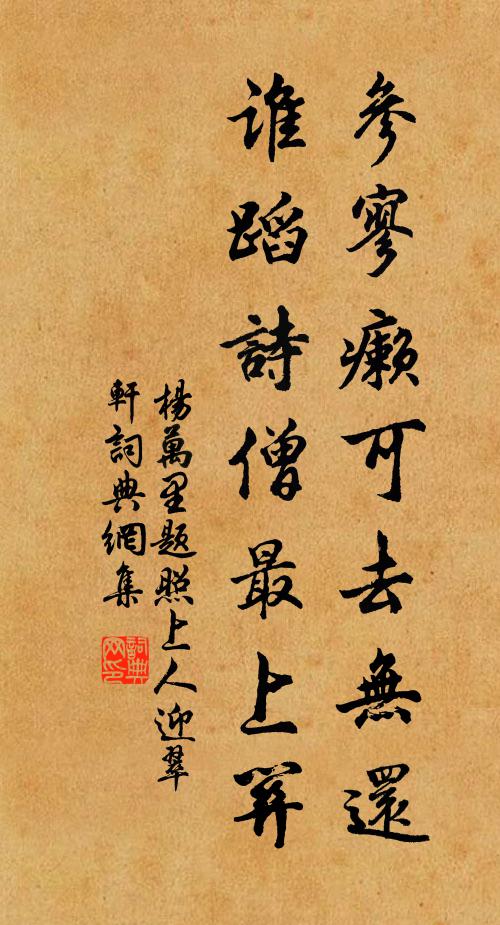 參寥癩可去無還
誰蹈詩僧最上關
楊萬里題照上人迎翠
軒詞典網集
詞典
网印